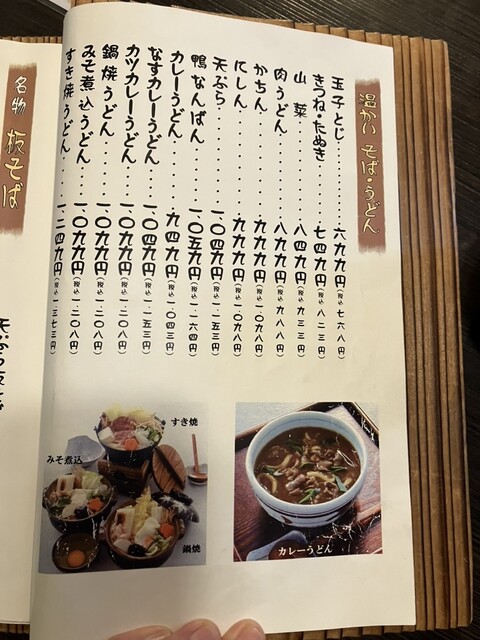 温かい そば・うどん
玉子とじ………六九九円(税込 七六八円)
きつね・たぬき……七四九円(税込 八二三円)
山菜………八四九円(税込 九三三円)
肉うどん………八九九円(税込 九八八円)
かちん………九九九円(税込 一、〇九八円)
にしん………九九九円(税込 一、〇九八円)
天ぷら………一、〇四九円(税込 一、一五三円)
鴨なんばん……一、〇五九円(税込 一、一六四円)
カレーうどん………九四九円(税込 一、〇四三円)
なすカレーうどん……一、〇四九円(税込 一、一五三円)
カツカレーうどん……一、〇九九円(税込 一、二〇八円)
鍋焼うどん………一、〇九九円(税込 一、二〇八円)
みそ煮込うどん……一、〇九九円(税込 一、二〇八円)
すき焼うどん……一、二四九円(税込 一、三七三円)
すき焼
みそ煮込
鍋焼
カレーうどん
名物 板そば